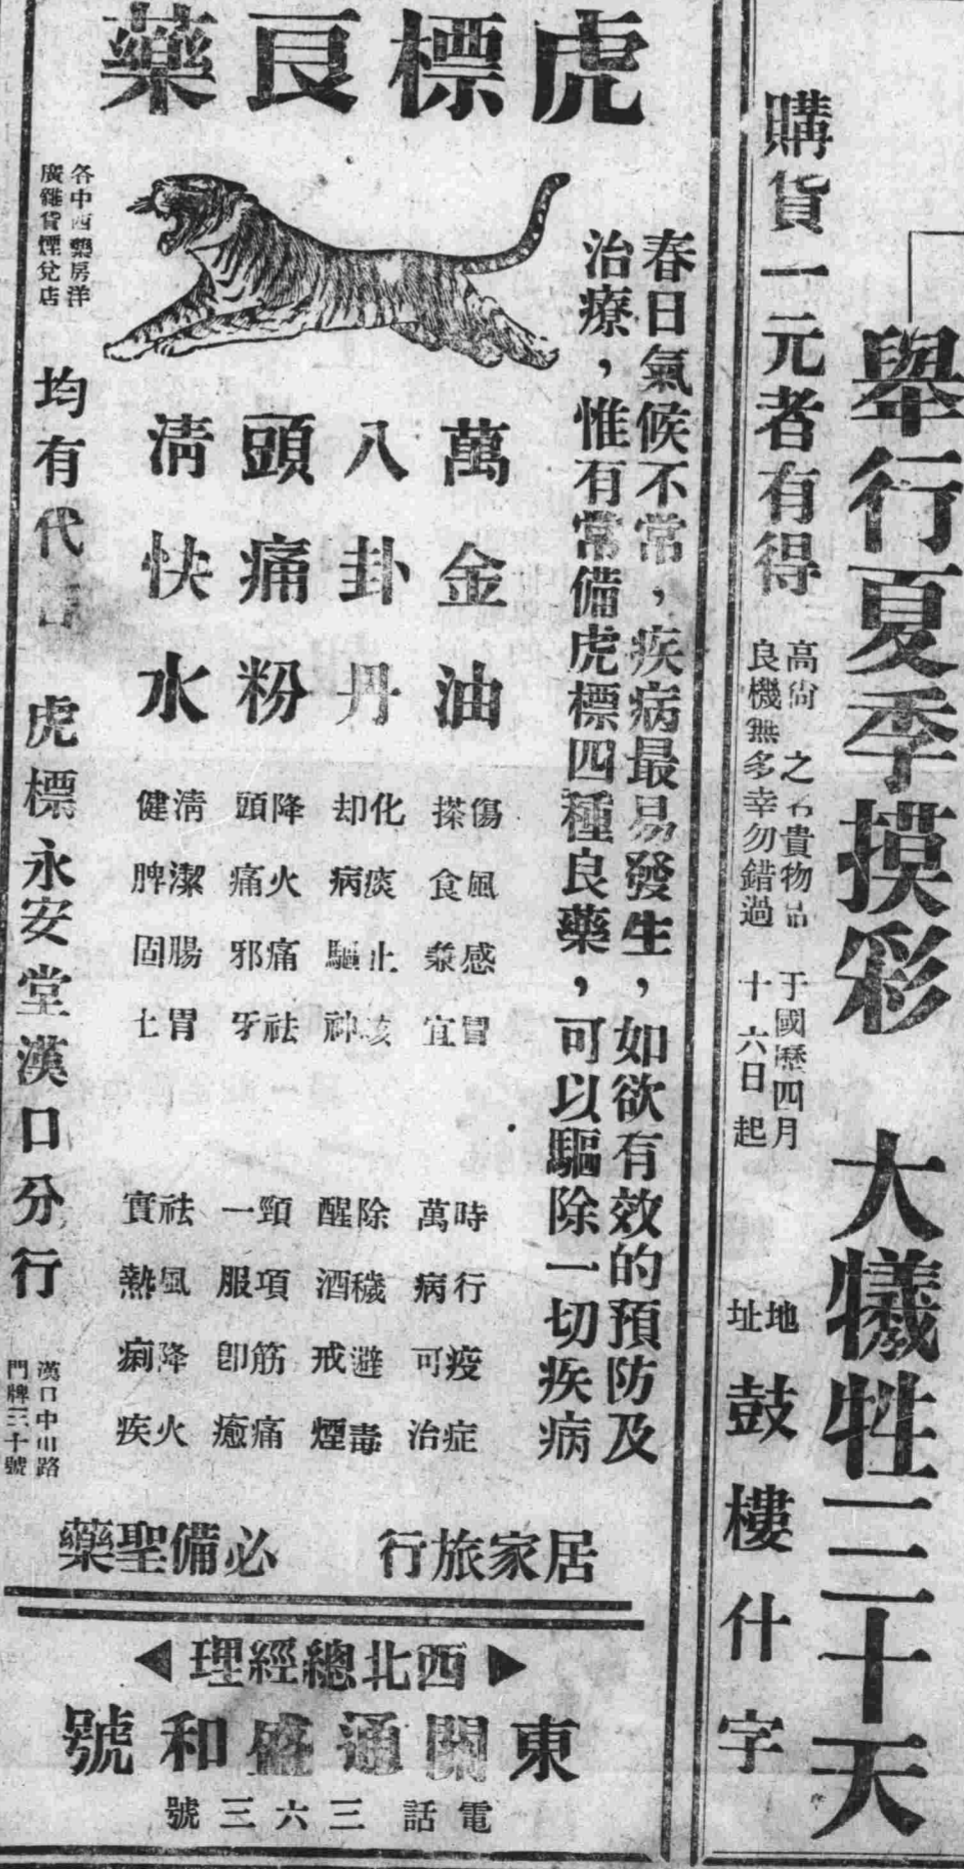 舉行夏季摸彩 大犧牲三十天
購貨一元者有得
高尚之名貴物品
良機無多幸勿錯過
于國歷四月
十六日起
地址
鼓樓什字
虎標良藥
春日氣候不常，疾病最易發生，如欲有效的預防及
治療，惟有常備虎標四種良藥，可以驅除一切疾病
萬金油
傷風感冒
搽食兼宜
時行疫症
萬病可治
八卦丹
化痰止咳
却病驅神
除穢避毒
醒酒戒煙
頭痛粉
降火痛祛
頭痛邪牙
頸項筋痛
一服卽癒
清快水
清潔腸胃
健脾固土
祛風降火
實熱痢疾
各中西藥房洋
廣雜貨煙兌店
均有代
虎標永安堂漢口分行
漢口中山路
門牌三十號
居家旅行 必備聖藥
西北總經理
東關通盛和號
電話三六三號